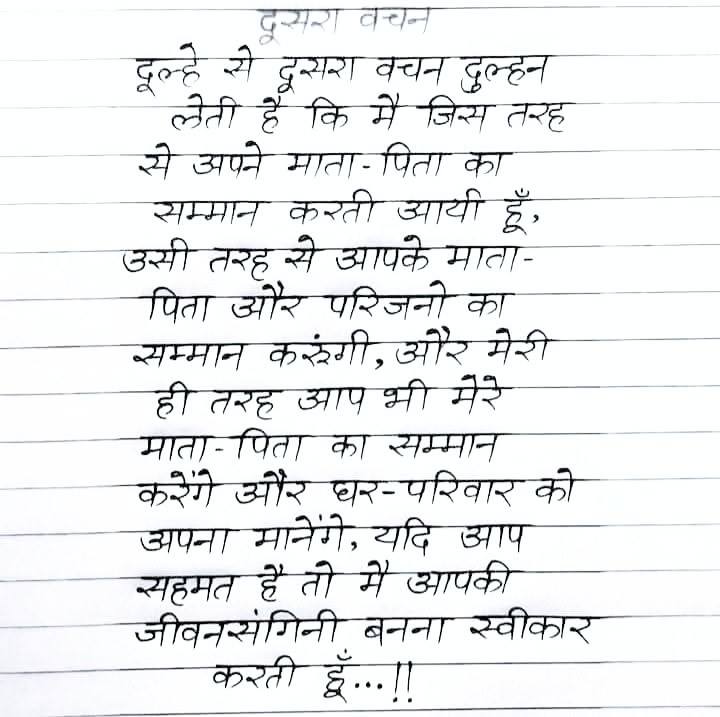 दूसरा वचन
दूल्हे से दूसरा वचन दुल्हन
लेती है कि मै जिस तरह
से अपने माता-पिता का
सम्मान करती आयी हूँ,
उसी तरह से आपके माता-
पिता और परिजनो का
सम्मान करुंगी, और मेरी
ही तरह आप भी मेरे
माता-पिता का सम्मान
करेंगे और घर-परिवार को
अपना मानेंगे, यदि आप
सहमत है तो मै आपकी
जीवनसंगिनी बनना स्वीकार
करती हूँ...!!